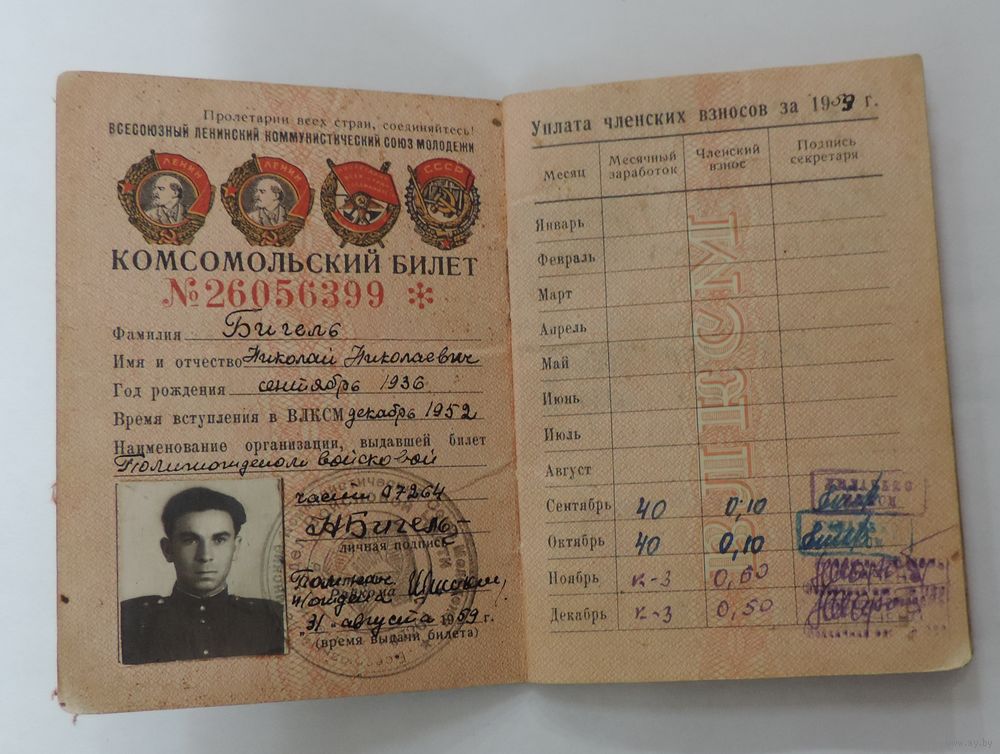 Пролетарии всех стран, соединяйтесь!
ВСЕСОЮЗНЫЙ ЛЕНИНСКИЙ КОММУНИСТИЧЕСКИЙ СОЮЗ МОЛОДЕЖИ
ЛЕНИН ЛЕНИН СССР
КОМСОМОЛЬСКИЙ БИЛЕТ
№26056399 *
Фамилия Бигель
Имя и отчество Николай Николаевич
Год рождения сентябрь 1936
Время вступления в ВЛКСМ декабрь 1952
Наименование организации, выдавшей билет
Политотделом войсковой
части 07264
НБигель
личная подпись
Райкома
"31" августа 1959 г.
(время выдачи билета)
Уплата членских взносов за 1959 г.
Месяц Месячный заработок Членский взнос Подпись секретаря
ВЛКСМ
Январь
Февраль
Март
Апрель
Май
Июнь
Июль
Август
Сентябрь 40 0,10
Октябрь 40 0,10
Ноябрь к-3 0,60
Декабрь к-3 0,50
www.ay.by